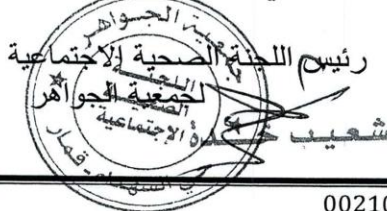 رئيس اللجنة الصحية الاجتماعية
لجمعية الجواهر
جمعية الجواهر
اللجنة
الصحية
الاجتماعية
شعيب
قمار
00210